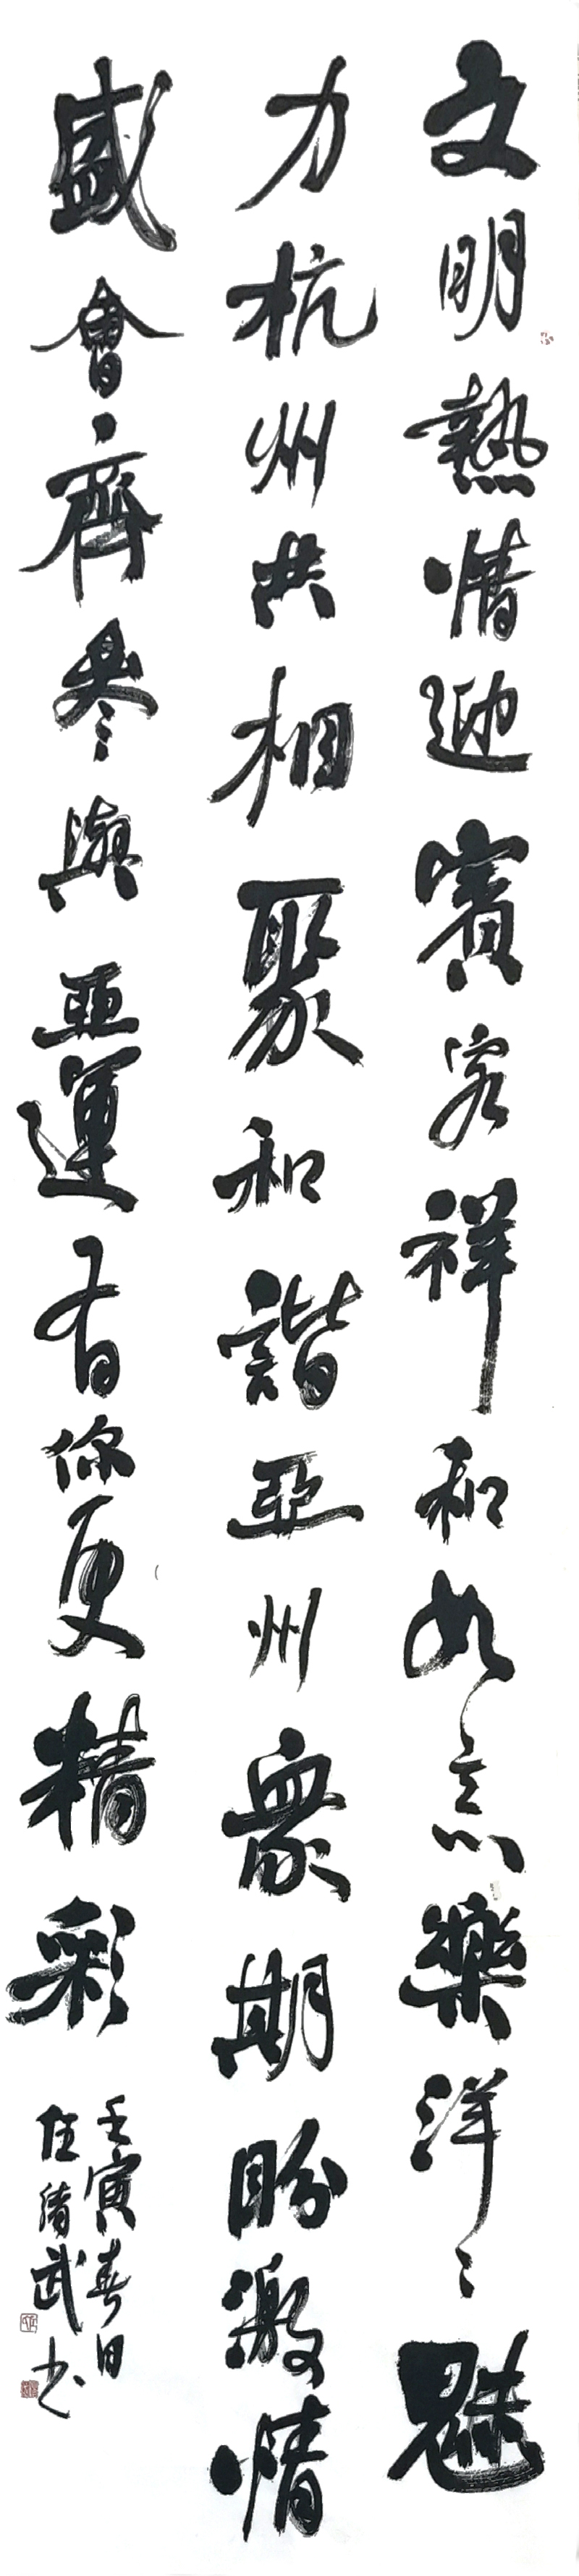 文明熱情迎賓客祥和如意樂洋〻魅
力杭州共相聚和諧亞州眾期盼激情
盛會齊參與亞運有你更精彩
壬寅春日
任清武书